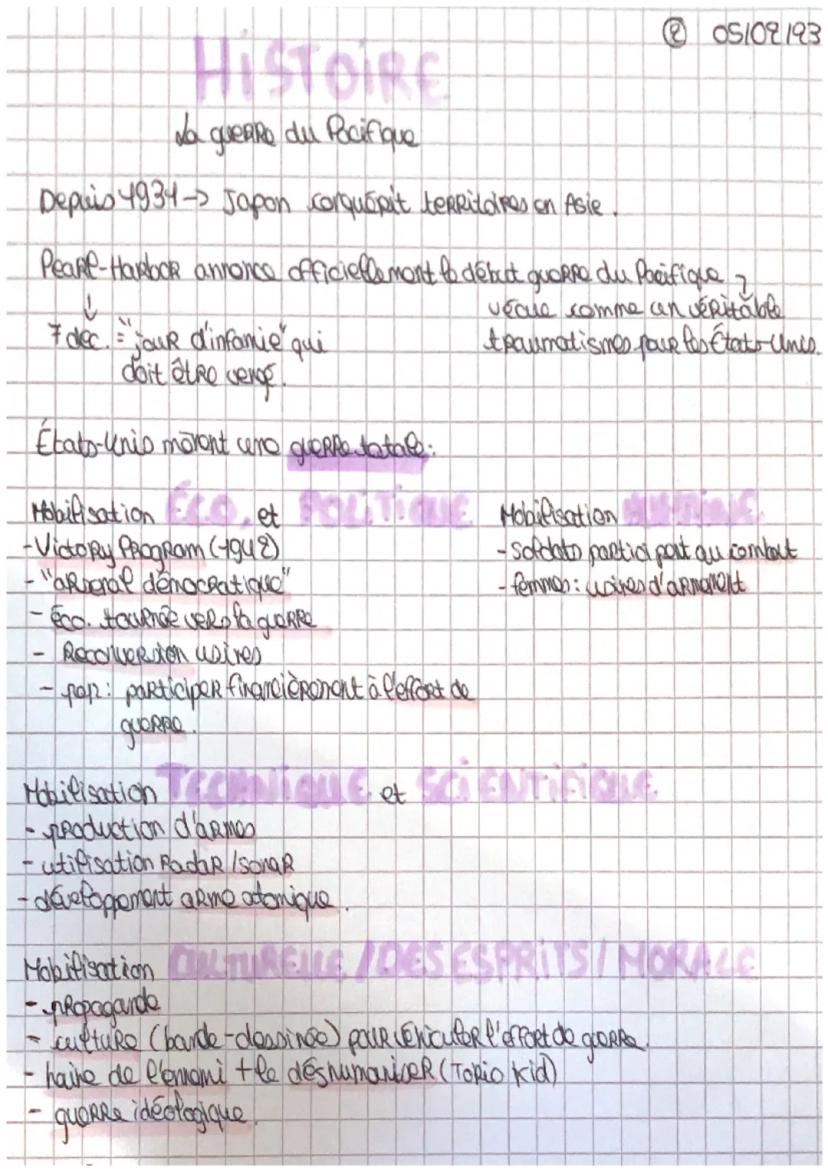 ② 05/02/23
HISTOIRE
La guerre du Pacifique
Depuis 1931 -> Japon conquérit territoires en Asie.
Pearl-Harbor annonce officiellement le début guerre du Pacifique
vécue comme un véritable
7 déc. = "jour d'infamie" qui
traumatismes pour les États-Unis.
doit être vengé.
États-Unis mènent une guerre totale :
Mobilisation ÉCO. et POLITIQUE
- Victory Program (1942)
- "arsenal démocratique"
- éco. tournée vers la guerre
- Reconversion usines
- pop : participer financièrement à l'effort de
guerre.
Mobilisation HUMAINE
- Soldats participent au combat
- femmes : usines d'armement
Mobilisation TECHNIQUE et SCIENTIFIQUE
- production d'armes
- utilisation Radar / sonar
- développement arme atomique.
Mobilisation CULTURELLE / DES ESPRITS / MORALE
- propagande
- culture (bande-dessinée) pour véhiculer l'effort de guerre.
- haine de l'ennemi + le déshumaniser (Tokio Kid)
- guerre idéologique.